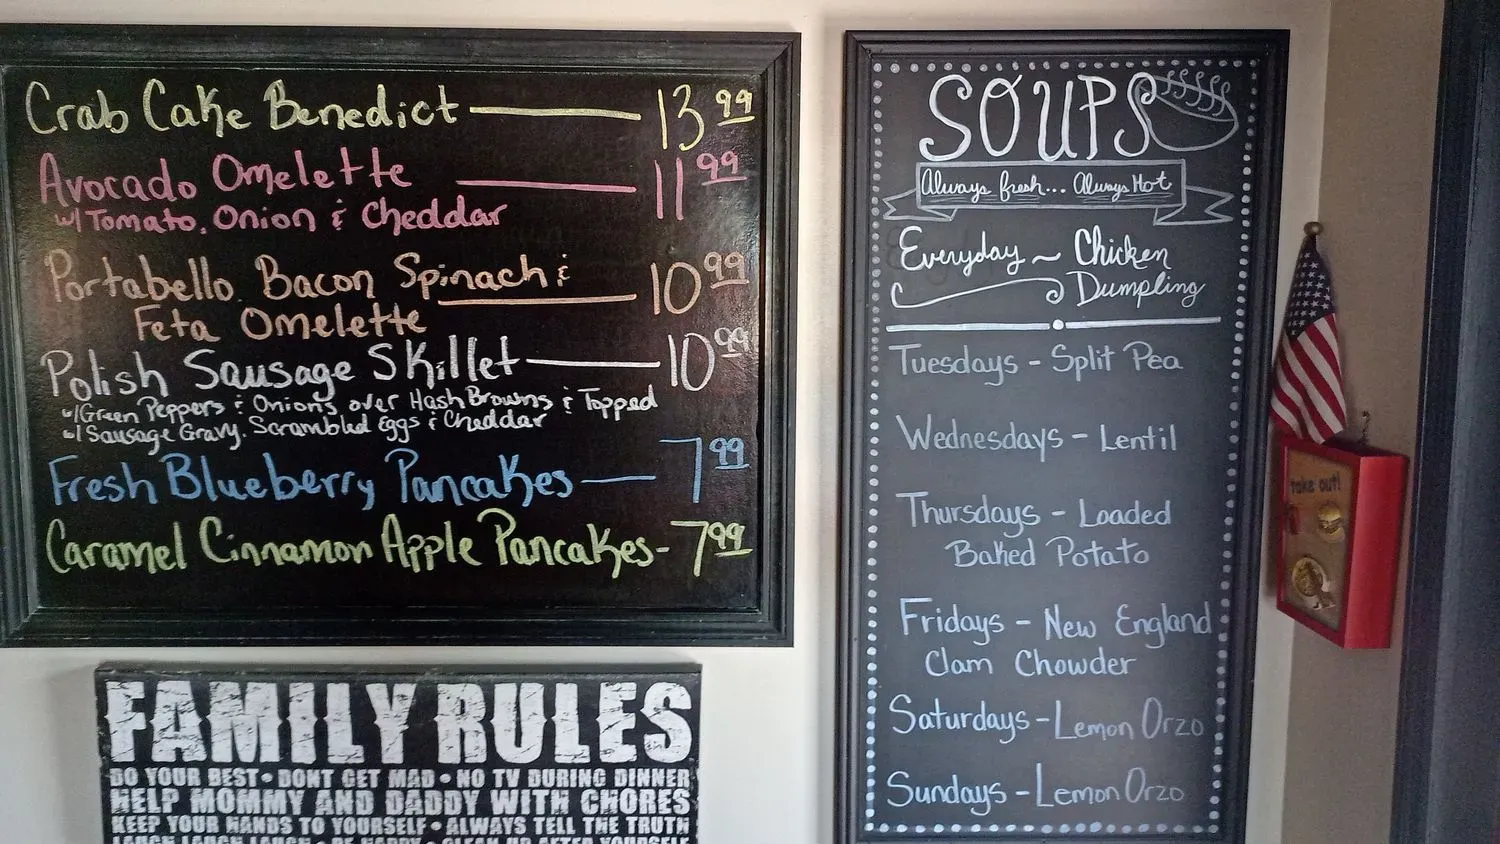 Crab Cake Benedict 13 99
Avocado Omelette 11 99
w/ Tomato, Onion & Cheddar
Portabello, Bacon Spinach &
Feta Omelette 10 99
Polish Sausage Skillet 10 99
w/ Green Peppers & Onions over Hash Browns & Topped
w/ Sausage Gravy, Scrambled Eggs & Cheddar
Fresh Blueberry Pancakes 7 99
Caramel Cinnamon Apple Pancakes - 7 99
FAMILY RULES
DO YOUR BEST • DONT GET MAD • NO TV DURING DINNER
HELP MOMMY AND DADDY WITH CHORES
KEEP YOUR HANDS TO YOURSELF • ALWAYS TELL THE TRUTH
SOUPS
Always fresh... Always Hot
Everyday ~ Chicken
Dumpling
Tuesdays - Split Pea
Wednesdays - Lentil
Thursdays - Loaded
Baked Potato
Fridays - New England
Clam Chowder
Saturdays - Lemon Orzo
Sundays - Lemon Orzo
take out!